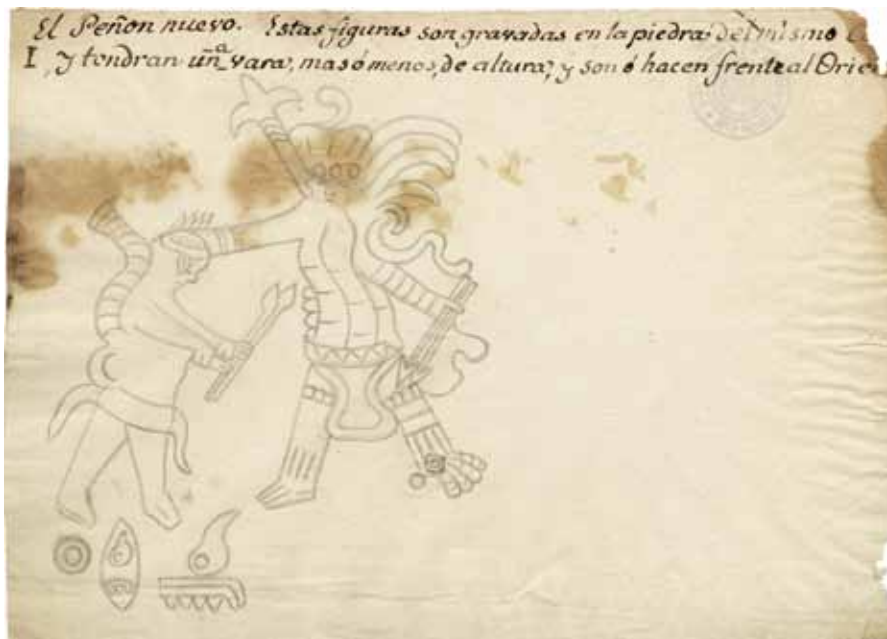 El Peñon nuevo. Estas figuras son gravadas en la piedra del mismo
I, y tendran uñ̃a vara, mas ó menos, de altura, y son ó hacen frente al Orie